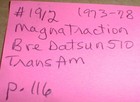 #1912 1973-78
Magna Traction
Bre Datsun 510
Trans Am
p. 116